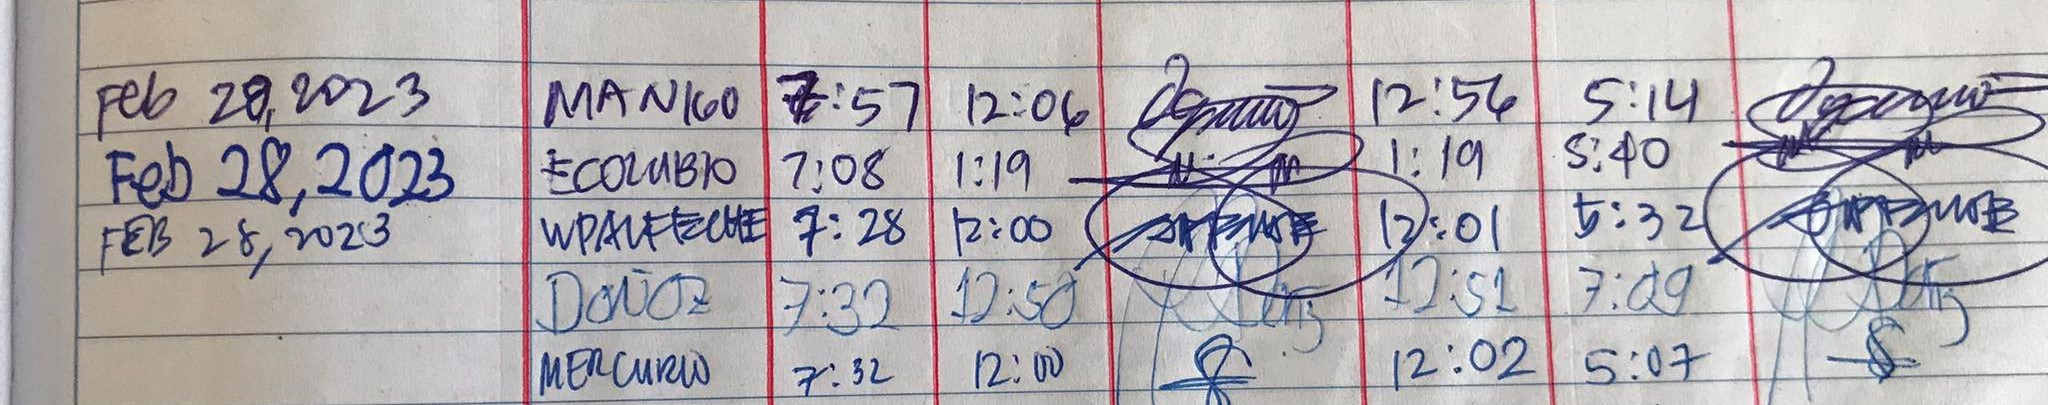 Feb 28, 2023 MANIGO 7:57 12:06 12:56 5:14
Feb 28, 2023 ECOLUBIO 7:08 1:19 1:19 5:40
FEB 28, 2023 7:28 12:00 12:01 5:32
DOÑOZ 7:32 12:50 12:51 7:09
MERCURIO 7:32 12:00 12:02 5:07